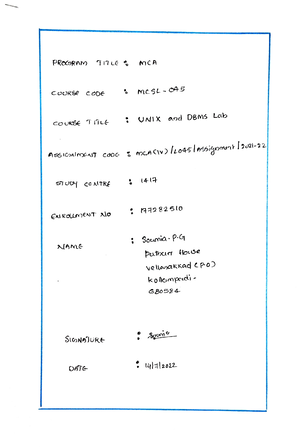 PROGRAM TITLE : MCA
COURSE CODE : MCSL-045
COURSE TITLE : UNIX and DBMS Lab
ASSIGNMENT CODE : MCA(IV)/L045/Assignment/2021-22
STUDY CENTRE : 1417
ENROLMENT NO : 197282510
NAME : Soumia.P.G
House
Vellarakkad (P.O)
680584
SIGNATURE :
DATE : 14/7/2022